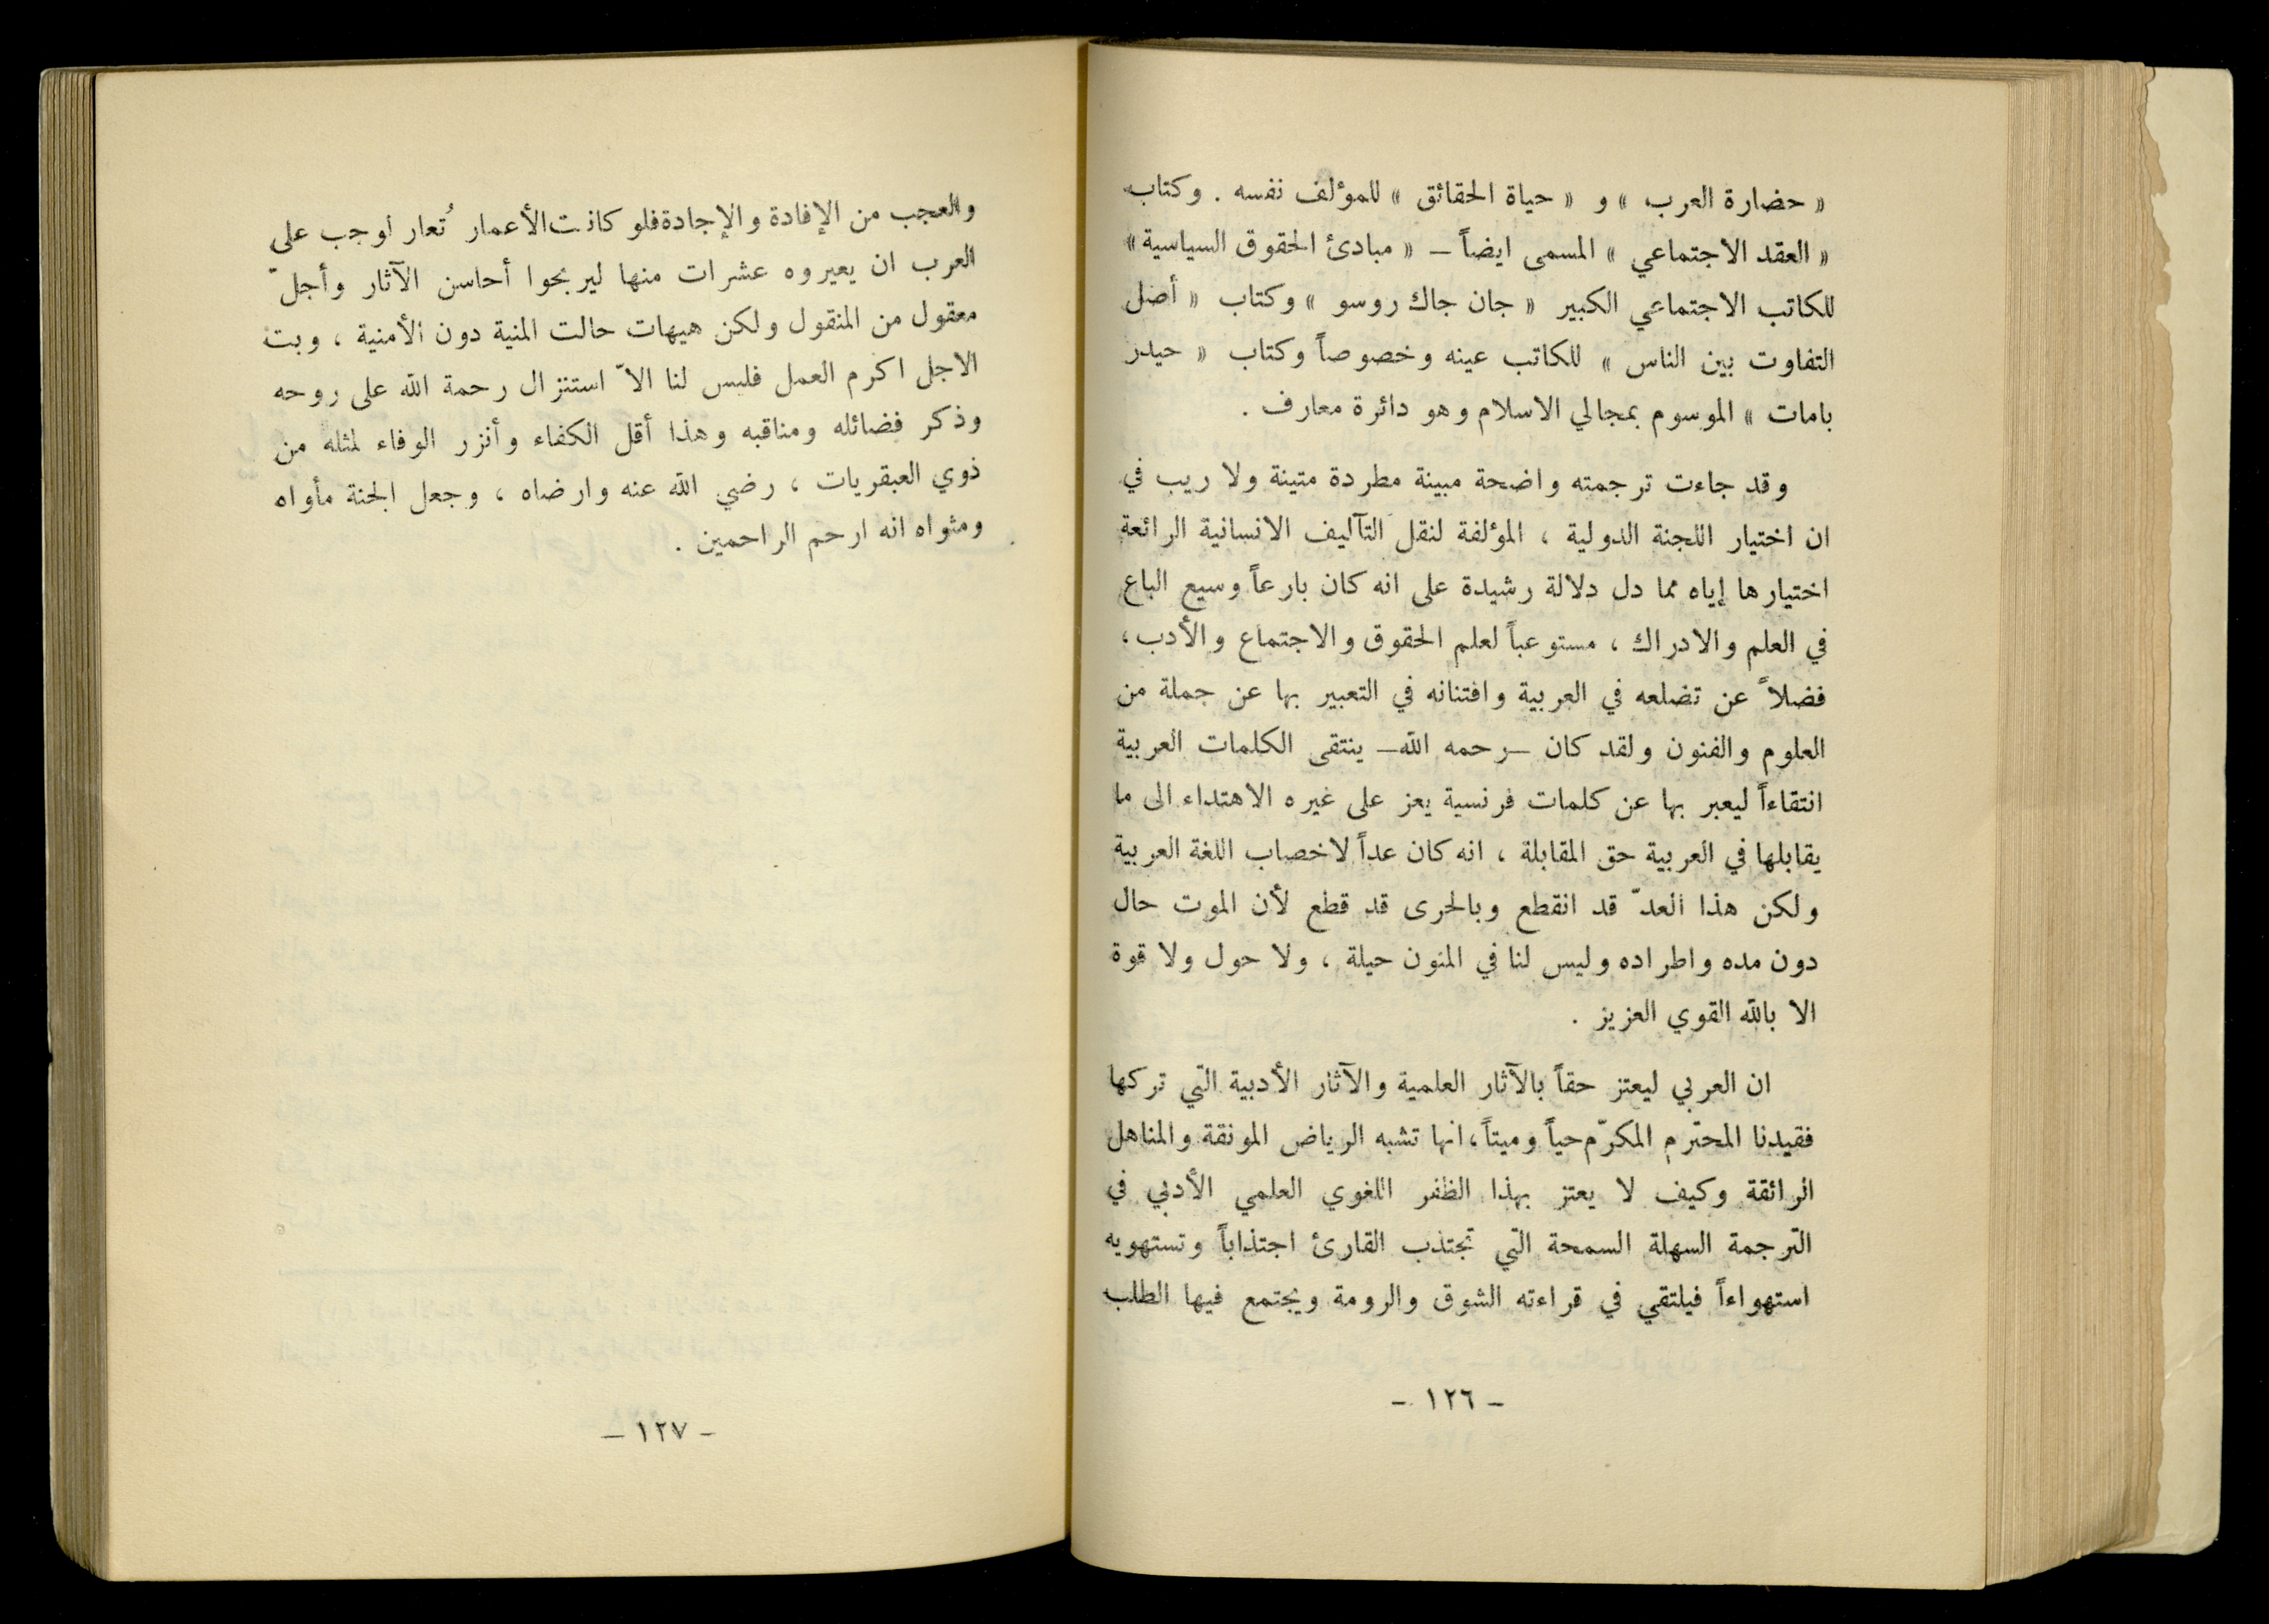 « حضارة العرب » و « حياة الحقائق » للمؤلف نفسه . وكتاب
« العقد الاجتماعي » المسمى ايضاً – « مبادئ الحقوق السياسية »
للكاتب الاجتماعي الكبير « جان جاك روسو » وكتاب « أصل
التفاوت بين الناس » للكاتب عينه وخصوصاً وكتاب « حيدر
بامات » الموسوم بمجالي الاسلام وهو دائرة معارف .
وقد جاءت ترجمته واضحة مبينة مطردة متينة ولا ريب في
ان اختيار اللجنة الدولية ، المؤلفة لنقل التآليف الانسانية الرائعة
اختيارها إياه مما دل دلالة رشيدة على انه كان بارعاً وسيع الباع
في العلم والادراك ، مستوعباً لعلم الحقوق والاجتماع والأدب ،
فضلاً عن تضلعه في العربية وافتنانه في التعبير بها عن جملة من
العلوم والفنون ولقد كان – رحمه الله – ينتقى الكلمات العربية
انتقاءاً ليعبر بها عن كلمات فرنسية يعز على غيره الاهتداء الى ما
يقابلها في العربية حق المقابلة ، انه كان عداً لاخصاب اللغة العربية
ولكن هذا العدّ قد انقطع وبالحرى قد قطع لأن الموت حال
دون مده واطراده وليس لنا في المنون حيلة ، ولا حول ولا قوة
الا بالله القوي العزيز .
ان العربي ليعتز حقاً بالآثار العلمية والآثار الأدبية التي تركها
فقيدنا المحترم المكرّم حياً وميتاً ، انها تشبه الرياض المونقة والمناهل
الرائقة وكيف لا يعتز بهذا الظفر اللغوي العلمي الأدبي في
الترجمة السهلة السمحة التي تجتذب القارئ اجتذاباً وتستهويه
استهواءاً فيلتقي في قراءته الشوق والرومة ويجتمع فيها الطلب
– ١٢٦ –
والعجب من الإفادة والإجادة فلو كانت الأعمار تُعار لوجب على
العرب ان يعيروه عشرات منها ليربحوا أحاسن الآثار وأجلّ
معقول من المنقول ولكن هيهات حالت المنية دون الأمنية ، وبت
الاجل اكرم العمل فليس لنا الاّ استنزال رحمة الله على روحه
وذكر فضائله ومناقبه وهذا أقل الكفاء وأنزر الوفاء لمثله من
ذوي العبقريات ، رضي الله عنه وارضاه ، وجعل الجنة مأواه
ومثواه انه ارحم الراحمين .
– ١٢٧ –